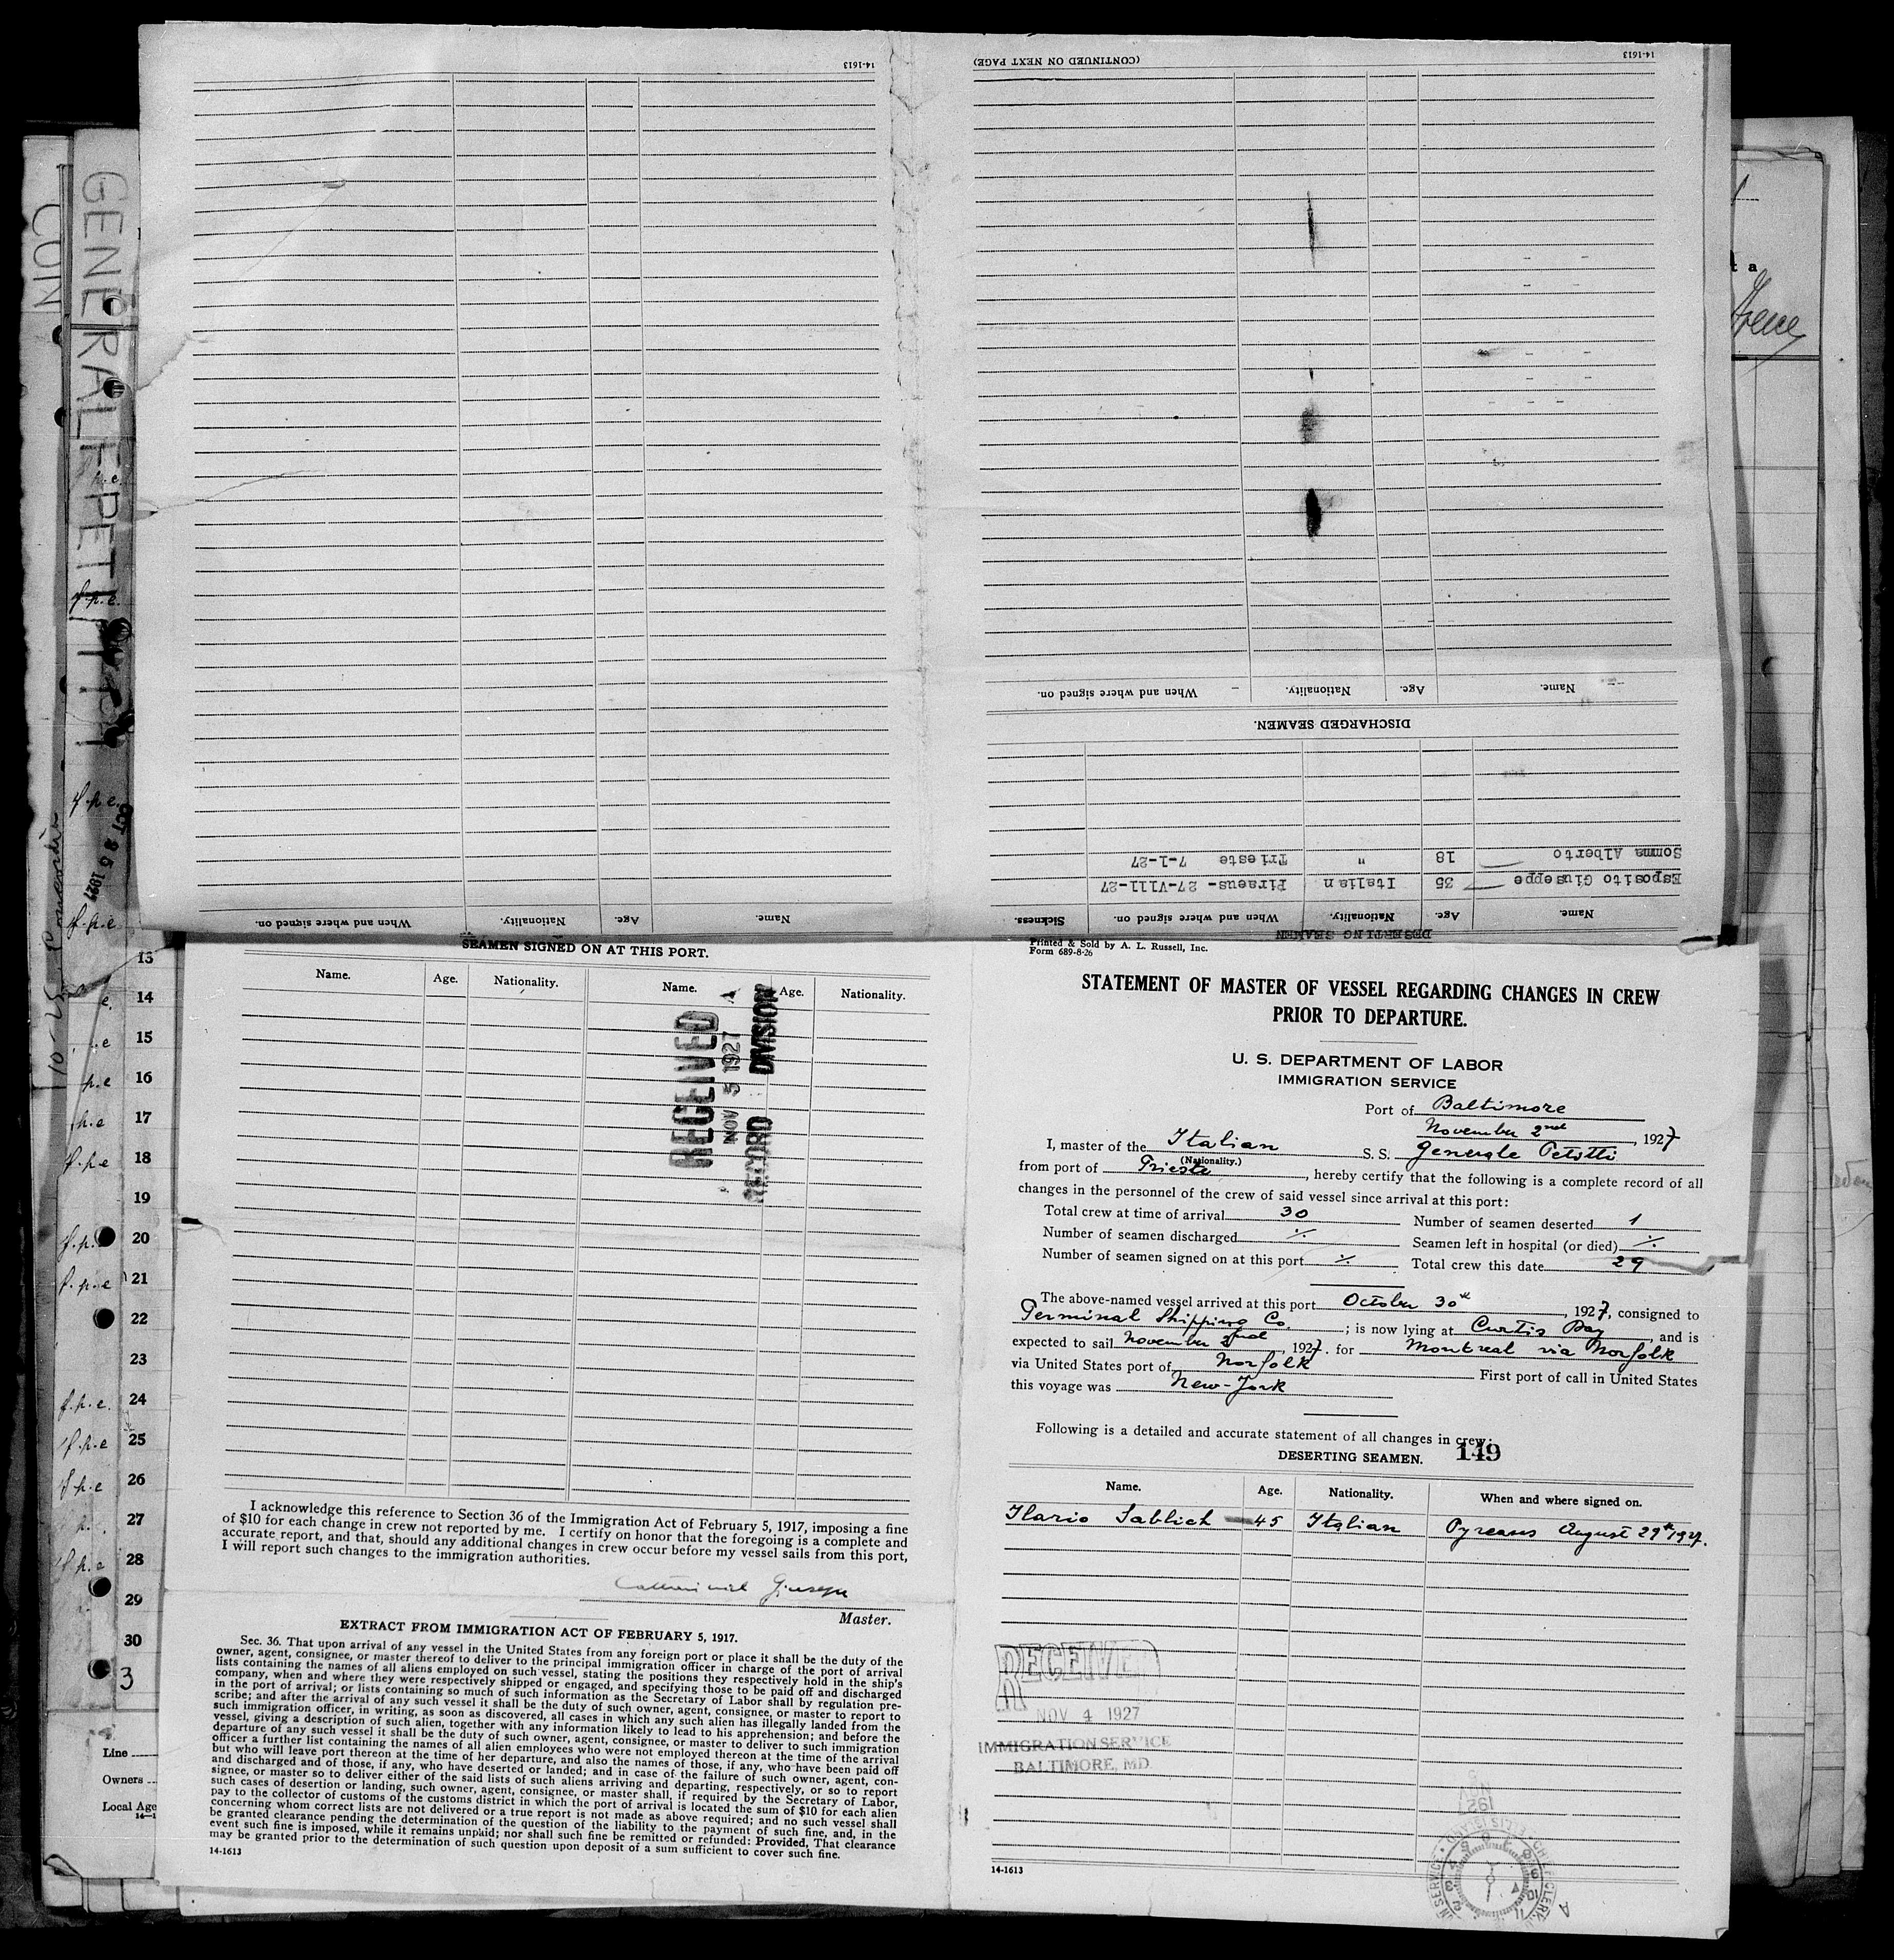 GENERALE PETITTI
CUN
OCT 25 1927
14-1613
(CONTINUED ON NEXT PAGE)
14-1613
Name.
Age.
Nationality.
When and where signed on.
DISCHARGED SEAMEN.
Somma Alberto 18 " Trieste 7-1-27
Esposito Giuseppe 35 Italian Piraeus- 27-VIII-27
Name. Age. Nationality. When and where signed on. Sickness.
DESERTING SEAMEN
Name. Age. Nationality. When and where signed on.
SEAMEN SIGNED ON AT THIS PORT.
Name. Age. Nationality. Name. Age. Nationality.
RECEIVED
NOV 5 1927
RECORD DIVISION
I acknowledge this reference to Section 36 of the Immigration Act of February 5, 1917, imposing a fine
of $10 for each change in crew not reported by me. I certify on honor that the foregoing is a complete and
accurate report, and that, should any additional changes in crew occur before my vessel sails from this port,
I will report such changes to the immigration authorities.
Giuseppe
Master.
EXTRACT FROM IMMIGRATION ACT OF FEBRUARY 5, 1917.
Sec. 36. That upon arrival of any vessel in the United States from any foreign port or place it shall be the duty of the
owner, agent, consignee, or master thereof to deliver to the principal immigration officer in charge of the port of arrival
lists containing the names of all aliens employed on such vessel, stating the positions they respectively hold in the ship's
company, when and where they were respectively shipped or engaged, and specifying those to be paid off and discharged
in the port of arrival; or lists containing so much of such information as the Secretary of Labor shall by regulation pre-
scribe; and after the arrival of any such vessel it shall be the duty of such owner, agent, consignee, or master to report to
such immigration officer, in writing, as soon as discovered, all cases in which any such alien has illegally landed from the
vessel, giving a description of such alien, together with any information likely to lead to his apprehension; and before the
departure of any such vessel it shall be the duty of such owner, agent, consignee, or master to deliver to such immigration
officer a further list containing the names of all alien employees who were not employed thereon at the time of the arrival
but who will leave port thereon at the time of her departure, and also the names of those, if any, who have been paid off
and discharged and of those, if any, who have deserted or landed; and in case of the failure of such owner, agent, con-
signee, or master so to deliver either of the said lists of such aliens arriving and departing, respectively, or so to report
such cases of desertion or landing, such owner, agent, consignee, or master shall, if required by the Secretary of Labor,
pay to the collector of customs of the customs district in which the port of arrival is located the sum of $10 for each alien
concerning whom correct lists are not delivered or a true report is not made as above required; and no such vessel shall
be granted clearance pending the determination of the question of the liability to the payment of such fine, and, in the
event such fine is imposed, while it remains unpaid; nor shall such fine be remitted or refunded: Provided, That clearance
may be granted prior to the determination of such question upon deposit of a sum sufficient to cover such fine.
14-1613
Printed & Sold by A. L. Russell, Inc.
Form 689-8-26
STATEMENT OF MASTER OF VESSEL REGARDING CHANGES IN CREW
PRIOR TO DEPARTURE.
U. S. DEPARTMENT OF LABOR
IMMIGRATION SERVICE
Port of Baltimore
November 2nd, 1927
I, master of the Italian S. S. Generale Petitti
(Nationality.)
from port of Trieste, hereby certify that the following is a complete record of all
changes in the personnel of the crew of said vessel since arrival at this port:
Total crew at time of arrival 30 Number of seamen deserted 1
Number of seamen discharged ./. Seamen left in hospital (or died) ./.
Number of seamen signed on at this port ./. Total crew this date 29
The above-named vessel arrived at this port October 30th, 1927, consigned to
Terminal Shipping Co.; is now lying at Curtis Bay, and is
expected to sail November 2nd, 1927. for Montreal via Norfolk
via United States port of Norfolk First port of call in United States
this voyage was New-York
Following is a detailed and accurate statement of all changes in crew:
149
DESERTING SEAMEN.
Name. Age. Nationality. When and where signed on.
Ilario Sablich 45 Italian Pyreaus August 29th 1927.
RECEIVED
NOV 4 1927
IMMIGRATION SERVICE
BALTIMORE, MD.
14-1613
13
14
15
16
17
18
19
20
21
22
23
24
25
26
27
28
29
30
3
Line
Owners
Local Age